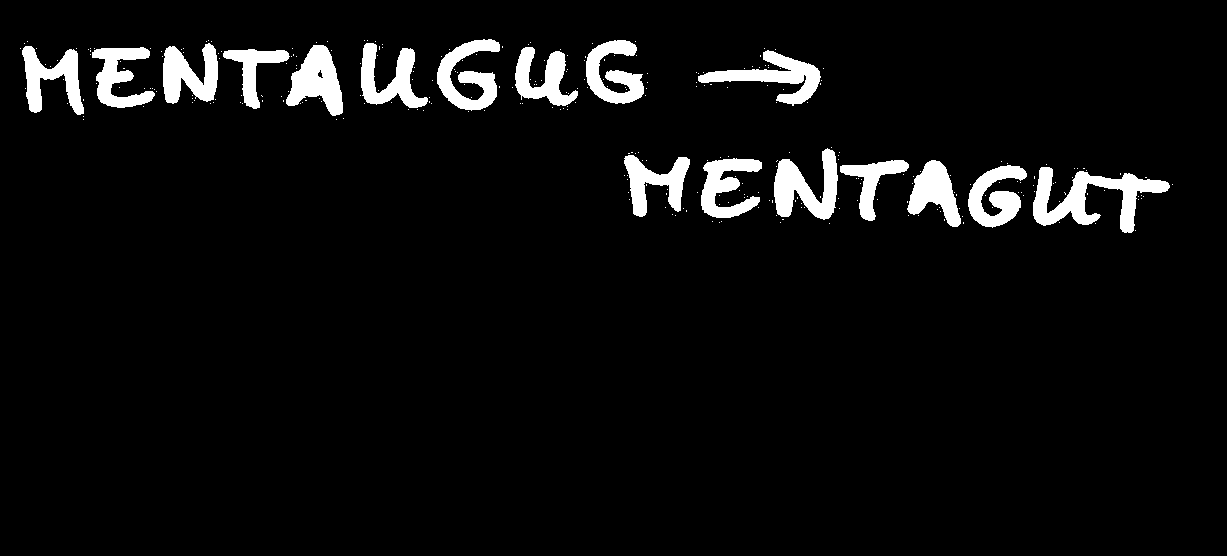 MENTAUGUG →
MENTAGUT